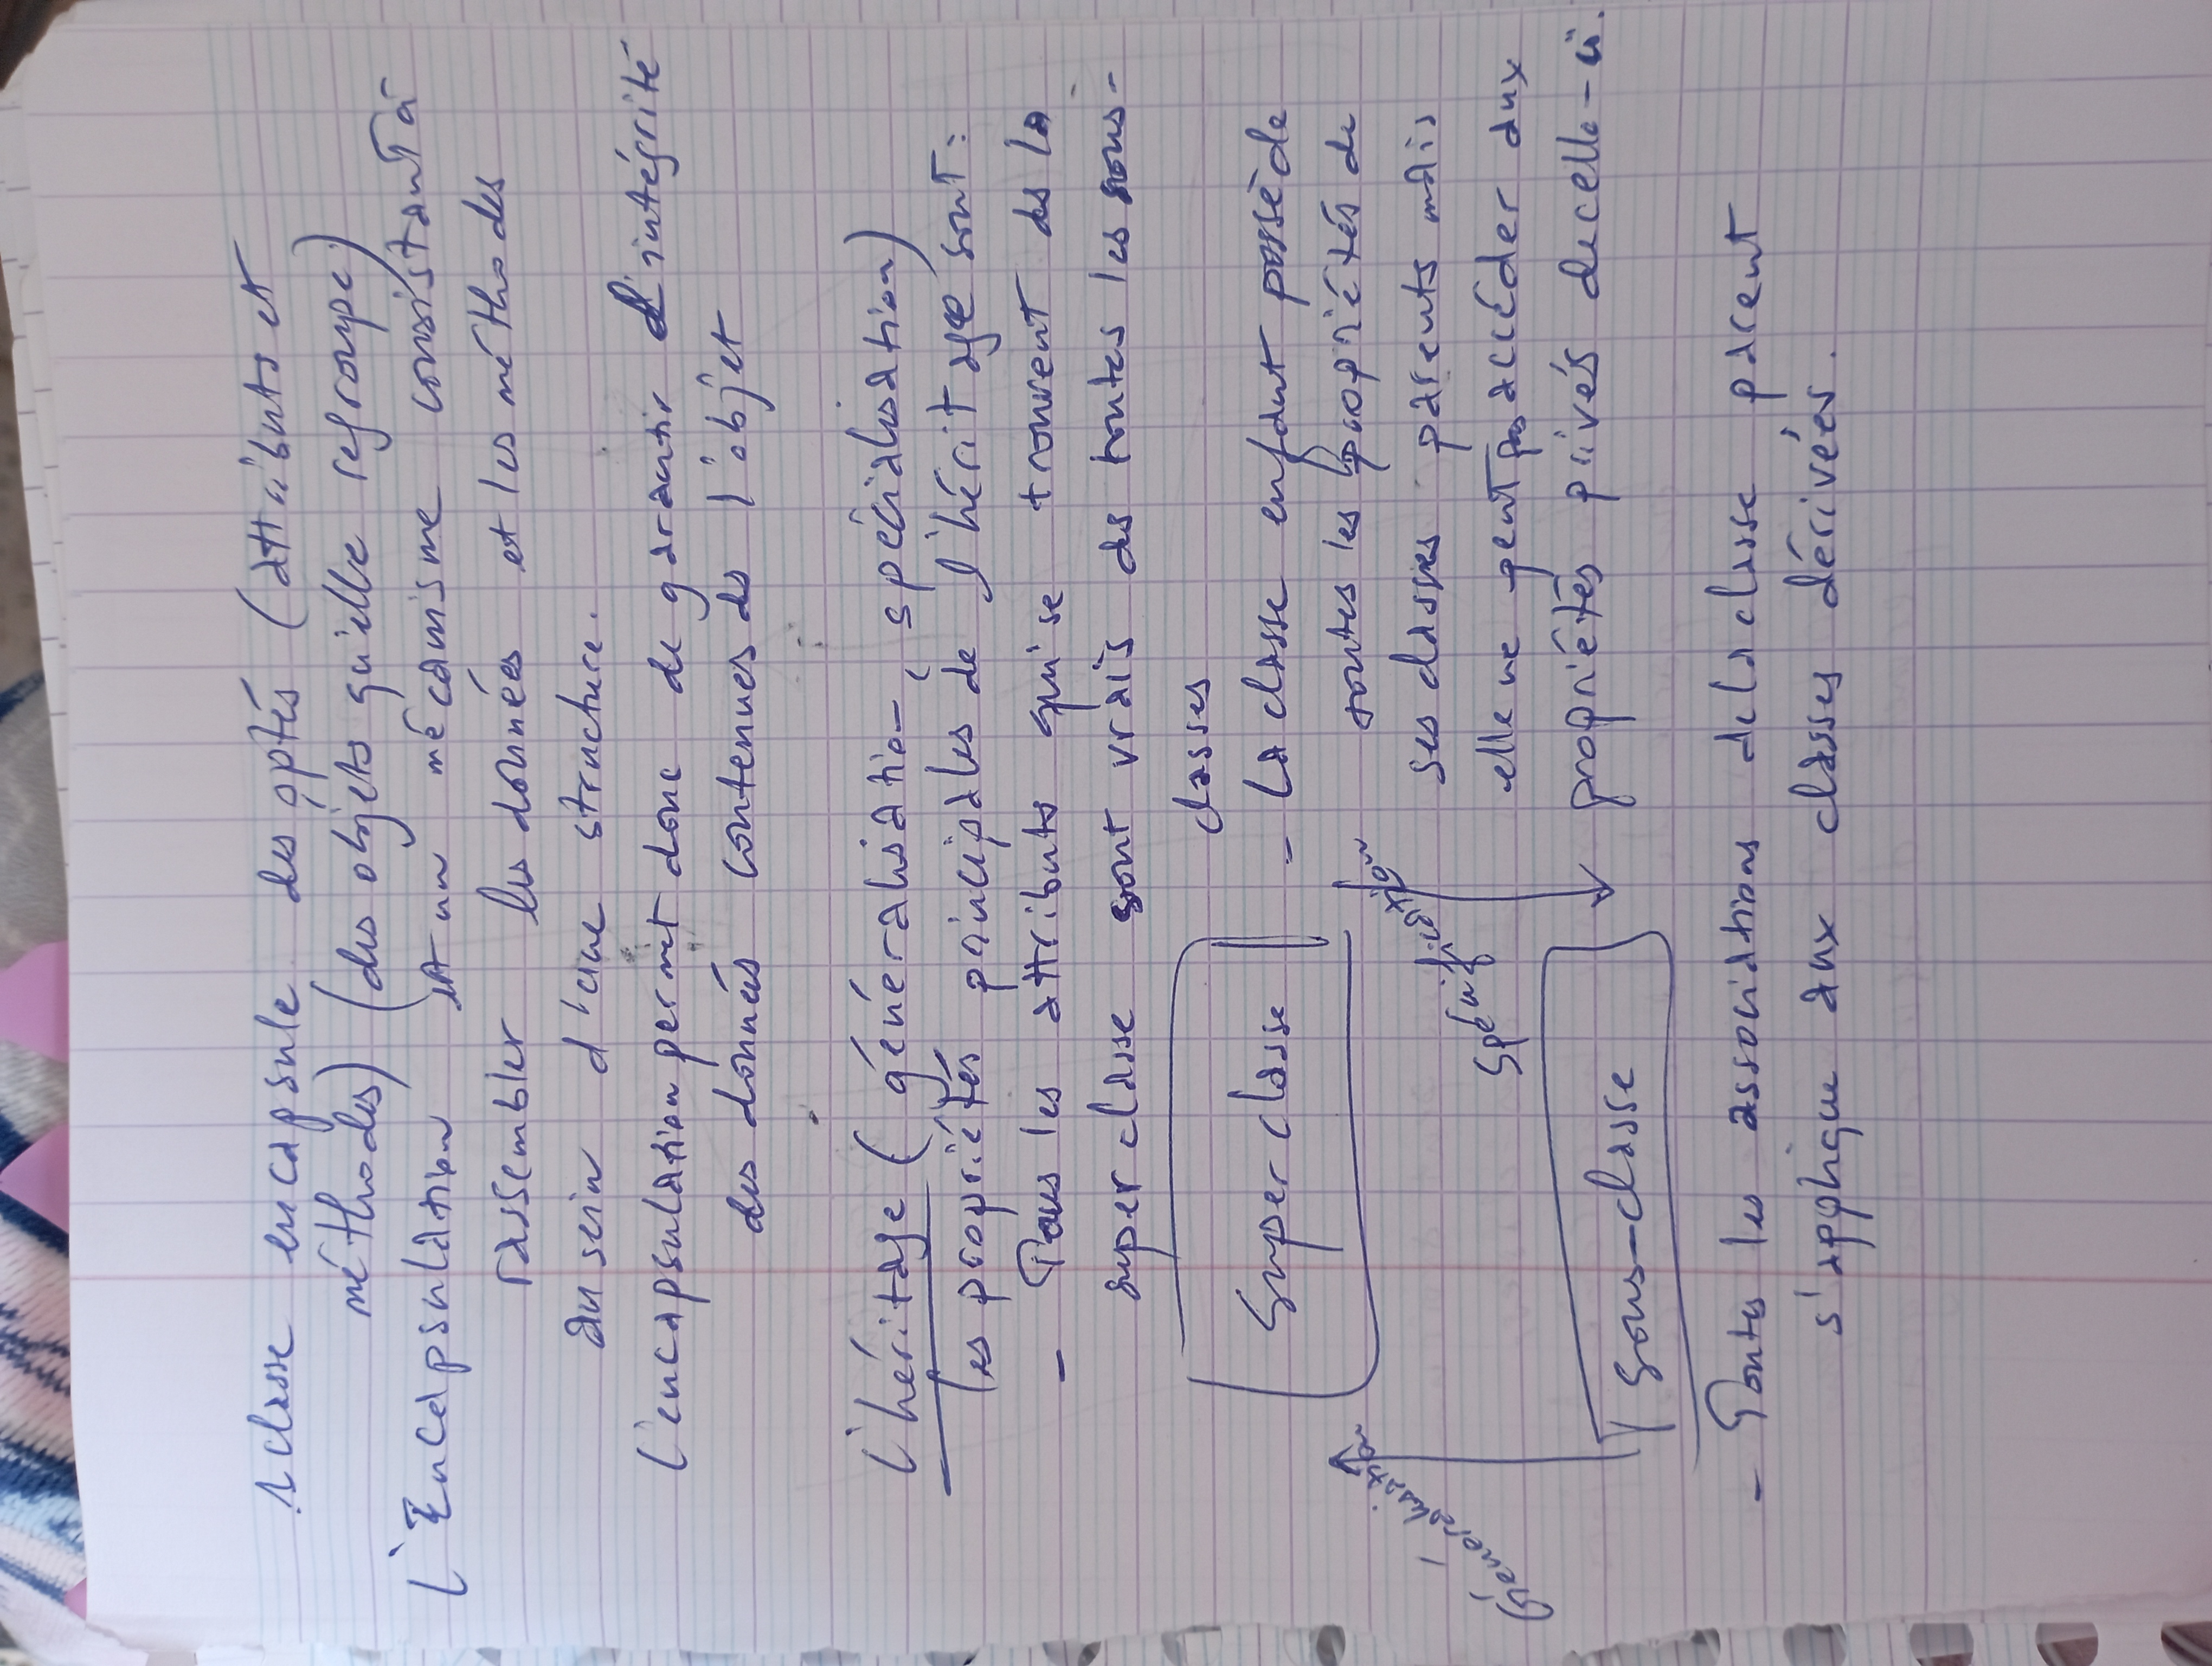 1 classe encapsule des ptés (attributs et
méthodes) (des objets qu'elle regroupe)
L'Encapsulation est un mécanisme consistant à
rassembler les données et les méthodes
au sein d'une structure.
L'encapsulation permet donc de garantir l'intégrité
des données contenues ds l'objet
L'héritage (généralisation, spécialisation)
les propriétés principales de l'héritage sont :
- Tous les attributs qui se trouvent ds la
super classe sont vrais ds toutes les sous-
classes
Super classe
- La classe enfant possède
toutes les propriétés de
ses classes parents mais
elle ne peut pas accéder aux
propriétés privés de celle-ci.
Généralisation
Spécification
sous-classe
- Toutes les associations de la classe parent
s'applique aux classes dérivées.